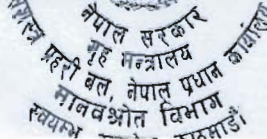 नेपाल सरकार
गृह मन्त्रालय
सशस्त्र प्रहरी बल, नेपाल प्रधान कार्यालय
मानवश्रोत विभाग